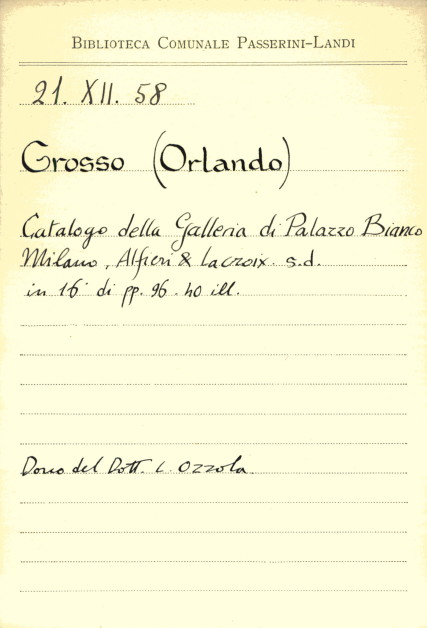 BIBLIOTECA COMUNALE PASSERINI-LANDI
21. XII. 58
Grosso (Orlando)
Catalogo della Galleria di Palazzo Bianco
Milano, Alfieri & Lacroix. s.d.
in 16° di pp. 96. 40 ill.
Dono del Dott. L. Ozzola.